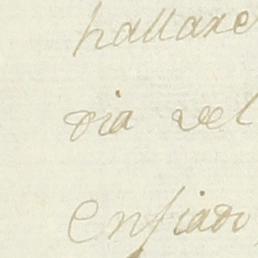 hallare
dia del
enfiado